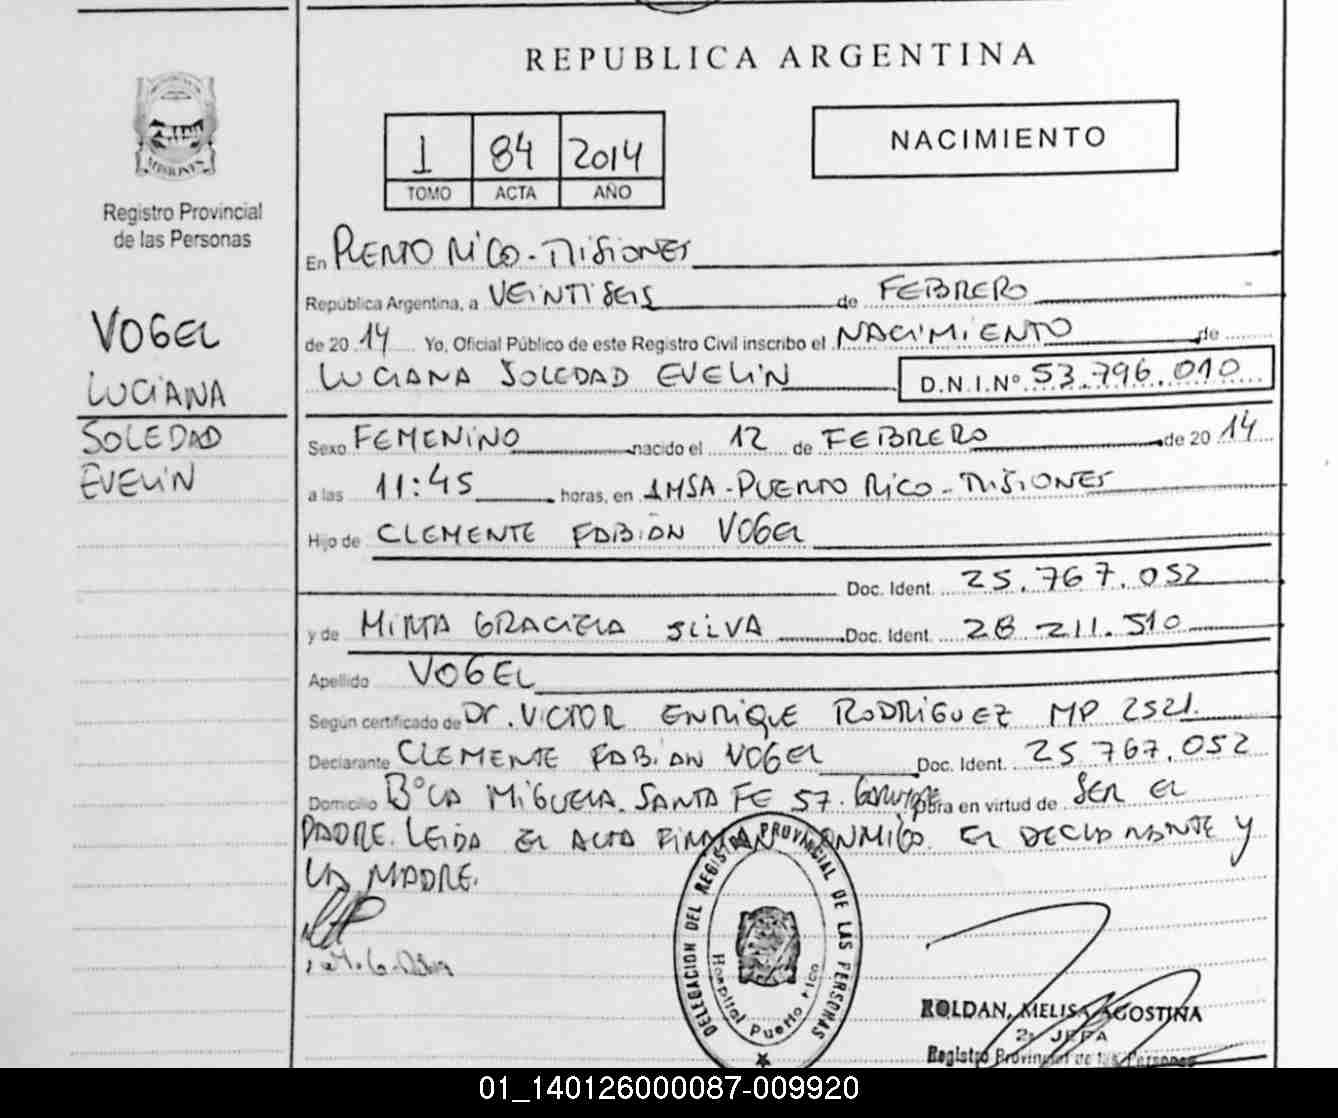 REPUBLICA ARGENTINA
MISIONES
Registro Provincial
de las Personas
VOGEL
LUCIANA
SOLEDAD
EVELIN
1 84 2014
TOMO ACTA AÑO
NACIMIENTO
En PUERTO RICO - MISIONES
República Argentina, a VEINTISEIS de FEBRERO
de 20 14 Yo, Oficial Público de este Registro Civil inscribo el NACIMIENTO de
LUCIANA SOLEDAD EVELIN D.N.I.Nº 53.796.010
Sexo FEMENINO nacido el 12 de FEBRERO de 20 14
a las 11:45 horas, en IMSA - PUERTO RICO - MISIONES
Hijo de CLEMENTE FABIAN VOGEL
Doc. Ident. 25.767.052
y de MIRTA GRACIELA SILVA Doc. Ident. 28 211.510
Apellido VOGEL
Según certificado de Dr. VICTOR ENRIQUE RODRIGUEZ MP 2521.
Declarante CLEMENTE FABIAN VOGEL Doc. Ident. 25 767.052
Domicilio Bº LA MIGUELA. SANTA FE 57. Obra en virtud de SER EL
PADRE. LEIDA EL ACTA FIRMAN CONMIGO. EL DECLARANTE Y
LA MADRE.
DELEGACION DEL REGISTRO PROVINCIAL DE LAS PERSONAS
Hospital Puerto Rico
ROLDAN, MELISA AGOSTINA
2º JEFA
Registro Provincial de las Personas
01_140126000087-009920